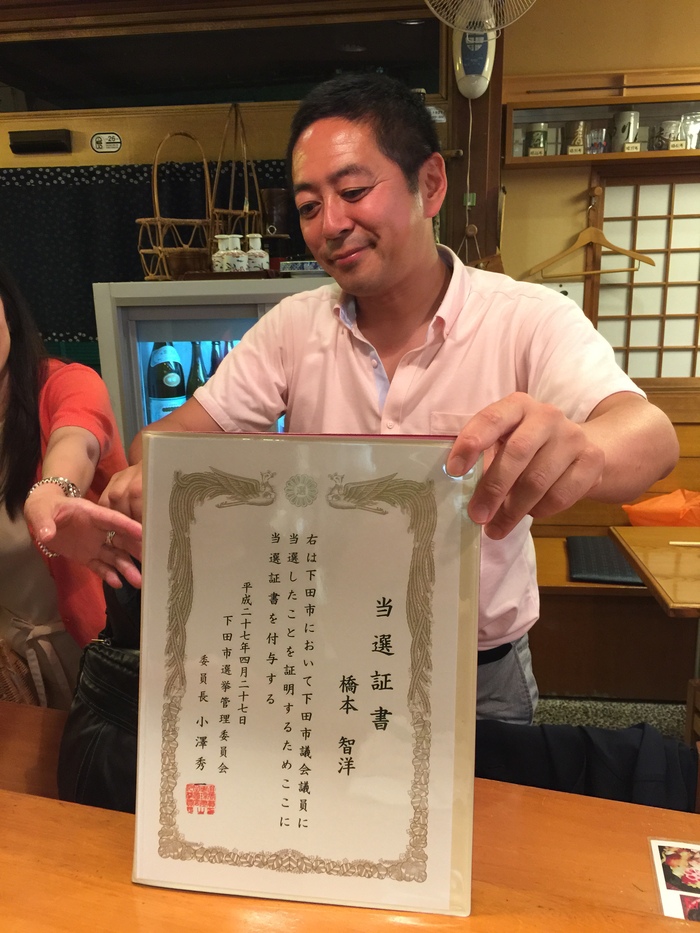 当選証書
橋本 智洋
右は下田市において下田市議会議員に
当選したことを証明するためここに
当選証書を付与する
平成二十七年四月二十七日
下田市選挙管理委員会
委員長 小澤秀